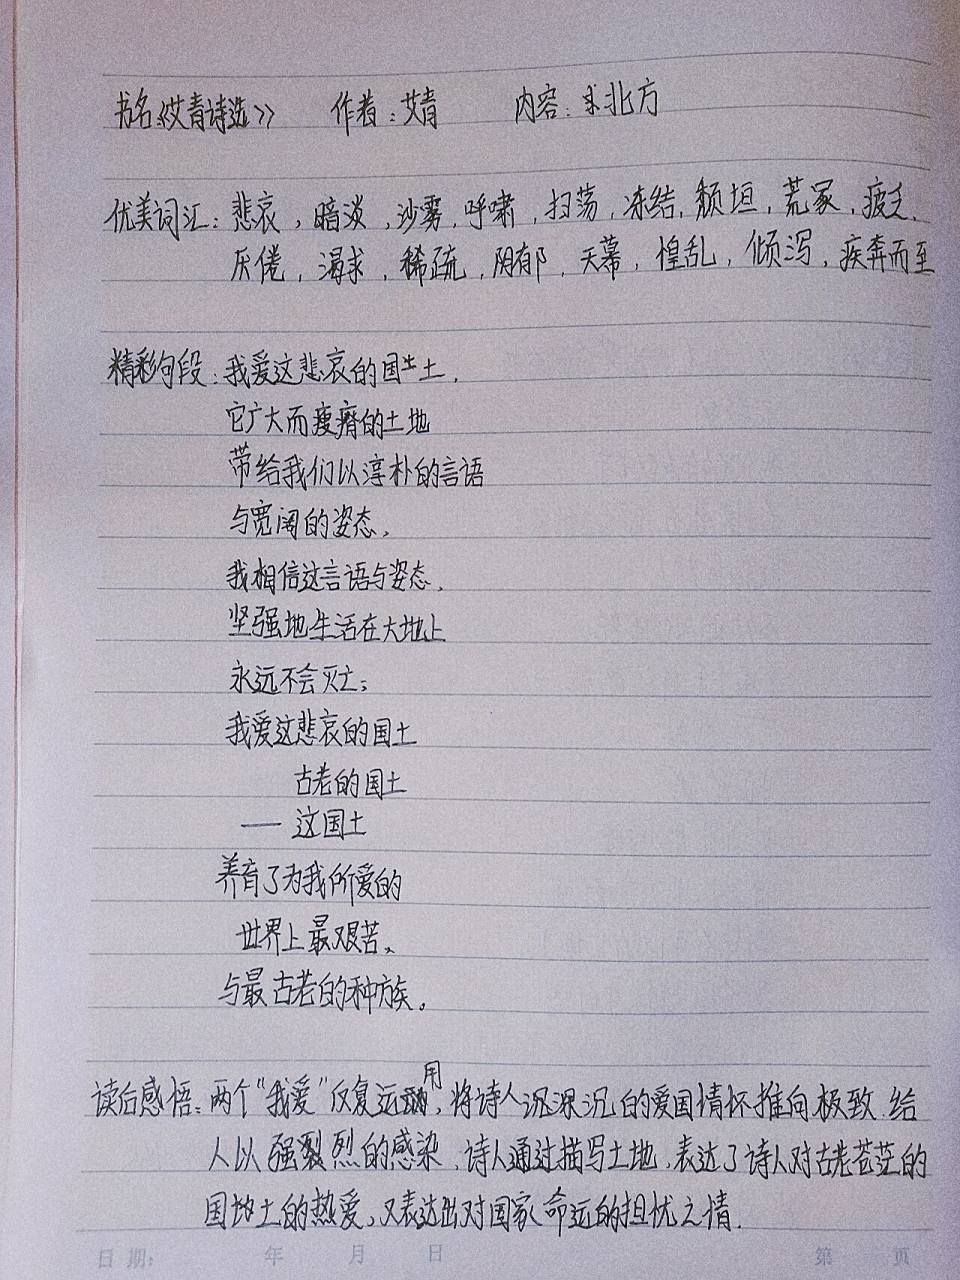 书名:《艾青诗选》 作者:艾青 内容:北方
优美词汇:悲哀,暗淡,沙雾,呼啸,扫荡,冻结,颓垣,荒冢,疲乏,
厌倦,渴求,稀疏,阴郁,天幕,惶乱,倾泻,疾奔而至
精彩句段:我爱这悲哀的国土,
它广大而瘦瘠的土地
带给我们以淳朴的言语
与宽阔的姿态,
我相信这言语与姿态,
坚强地生活在大地上
永远不会灭;
我爱这悲哀的国土
古老的国土
——这国土
养育了为我所爱的
世界上最艰苦、
与最古老的种族。
读后感悟:两个"我爱"反复运用,将诗人深沉的爱国情怀推向极致 给
人以强烈的感染,诗人通过描写土地,表达了诗人对古老苍茫的
国土的热爱,又表达出对国家命运的担忧之情.
日期: 年 月 日 第 页